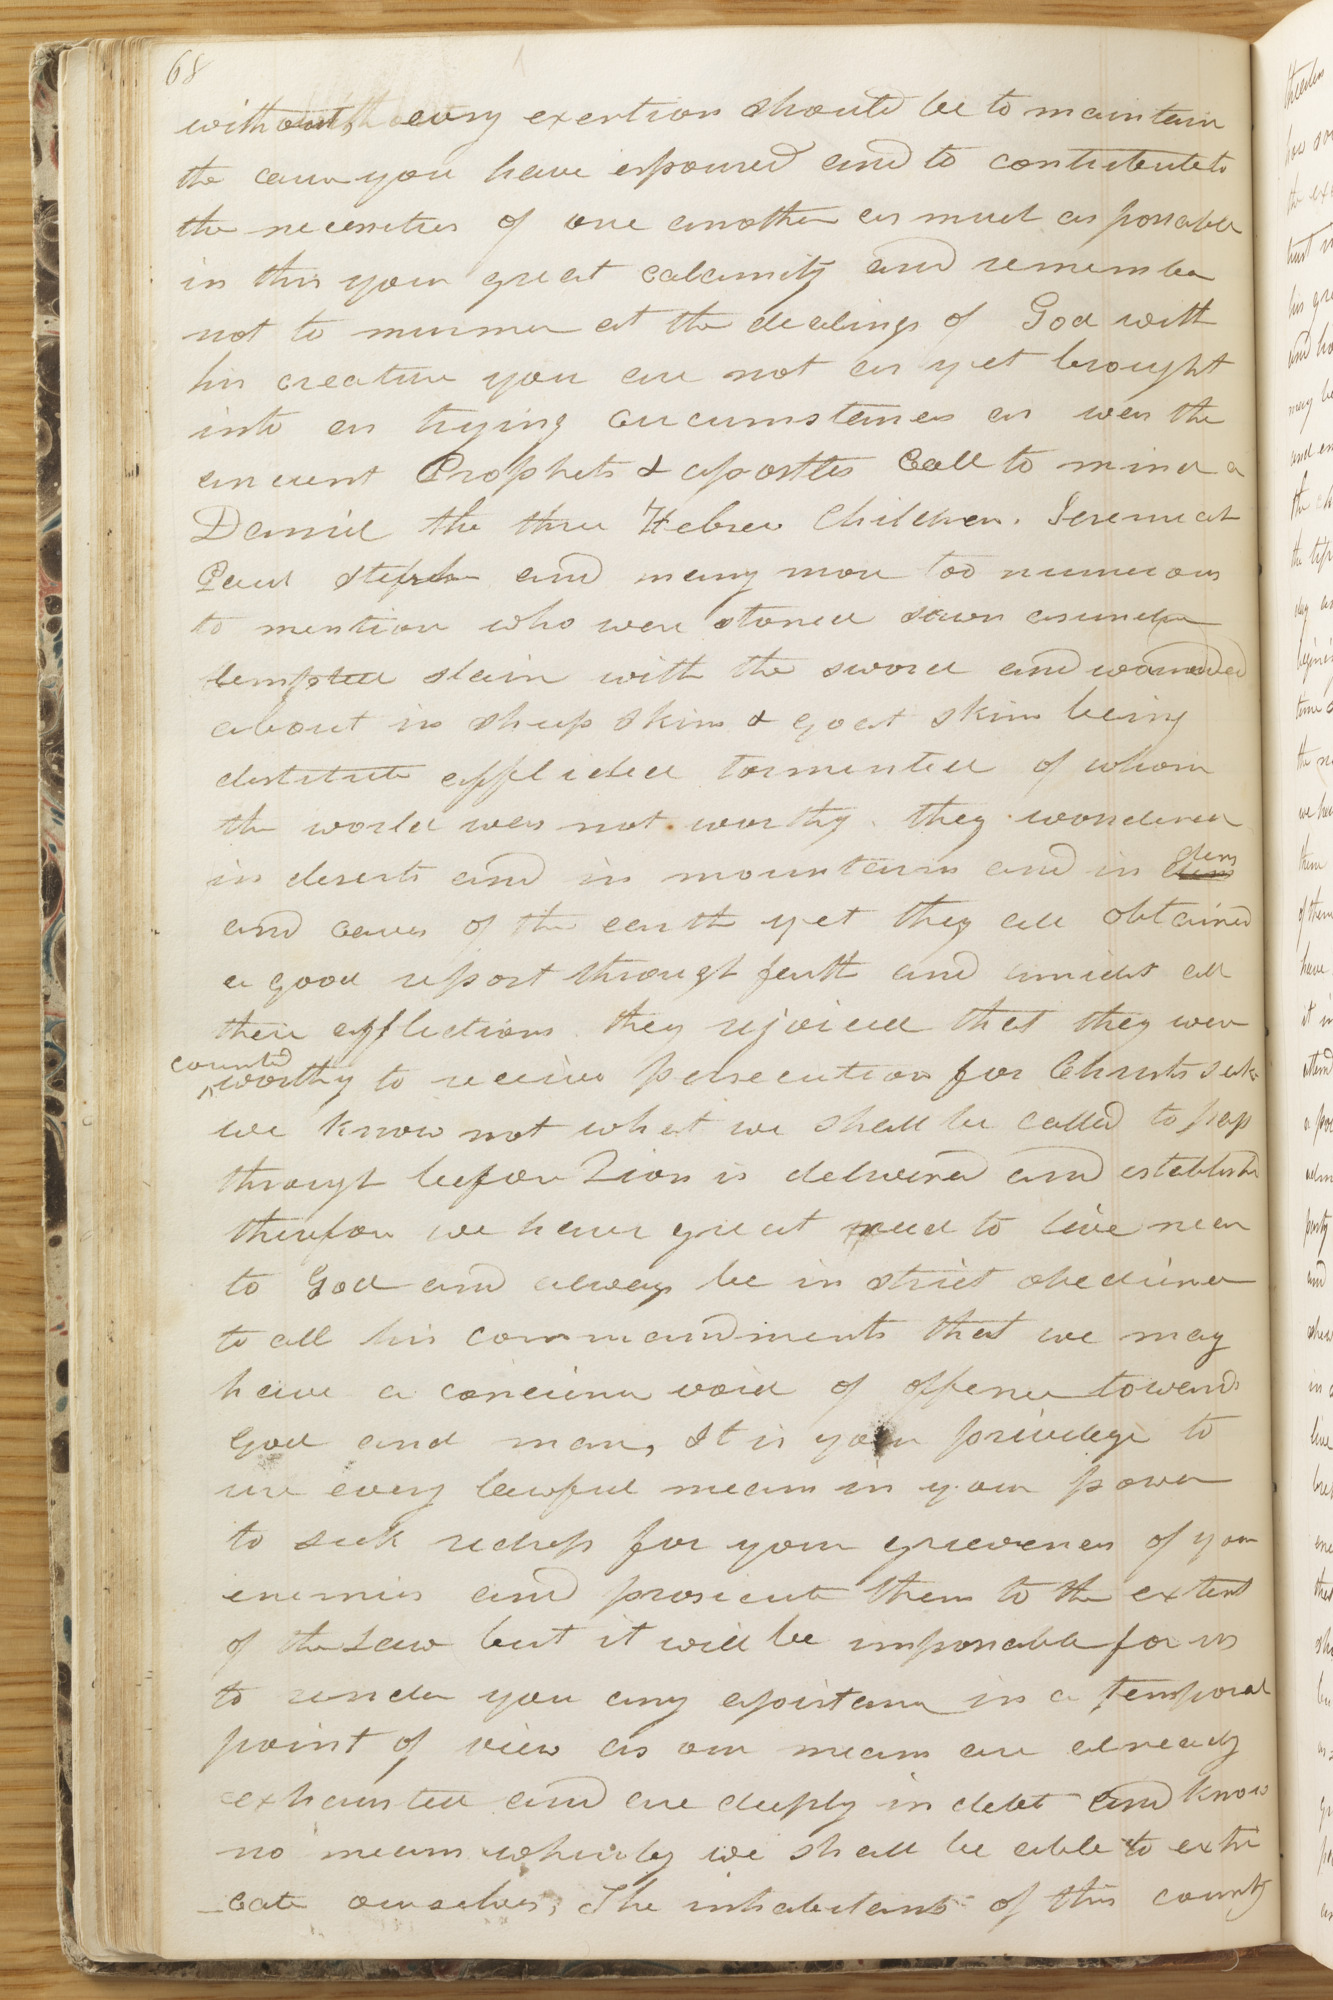 68
without, every exertion should be to maintain
the cause you have espoused and to contribute to
the necessities of one another as much as possable
in this your great calamity and remember
not to murmer at the dealings of God with
his creature you are not as yet brought
into as trying circumstances as was the
ancient Prophets & apostles Call to mind a
Daniel the three Hebrew Children. Jeremiah
Paul Stephen and many more too numerous
to mention who were stoned sawn asunder
tempted slain with the sword and wandred
about in sheep skins & goat skins being
destitute afflicted tormented of whom
the world was not worthy. they wondered
in deserts and in mountains and in dens
and caves of the earth yet they all obtained
a good report through faith and amidst all
their afflictions they rejoiced that they were
counted worthy to receive persecution for Christs sake
we know not what we shall be called to pass
through before Zion is delivered and establishd
therefore we have great need to live near
to God and always be in strict obedience
to all his commandments that we may
have a concience void of offence towards
God and man, It is your priviledge to
use every lawful means in your power
to seek redress for your grievences of your
enemies and prosicute them to the extent
of the Law but it will be impossable for us
to render you any assistance in a temporal
point of view as our means are already
exhausted and are deeply in debt and know
no means whereby we shall be able to extri
-cate ourselves, The inhabitants of this county